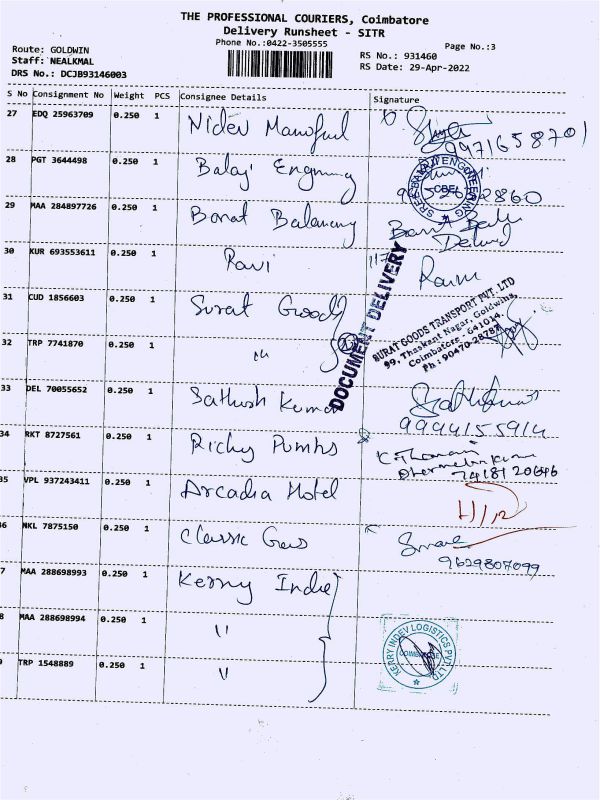 THE PROFESSIONAL COURIERS, Coimbatore
Delivery Runsheet - SITR
Phone No.:0422-3505555
Page No.:3
Route: GOLDWIN
Staff: NEALKMAL
DRS No.: DCJB93146003
RS No.: 931460
RS Date: 29-Apr-2022
S No Consignment No Weight PCS Consignee Details Signature
27 EDQ 25963709 0.250 1
9971658701
28 PGT 3644498 0.250 1 Balaji
29 MAA 284897726 0.250 1
30 KUR 693553611 0.250 1 Ravi
DOCUMENT DELIVERY
31 CUD 1856603 0.250 1 Surat Goods
SURAT GOODS TRANSPORT PVT. LTD
99, Thaskant Nagar, Goldwins,
Coimbatore - 641014.
Ph : 90470-28787
32 TRP 7741870 0.250 1 "
33 DEL 70055652 0.250 1 Sathush Kumar
9994155914
34 RKT 8727561 0.250 1 Richy Pumps
7418120646
35 VPL 937243411 0.250 1 Arcadia Hotel
36 NKL 7875150 0.250 1 Classic
9629807099
37 MAA 288698993 0.250 1 Kerry Indev
38 MAA 288698994 0.250 1 "
39 TRP 1548889 0.250 1 "
KERRY INDEV LOGISTICS PVT. LTD.
COIMBATORE